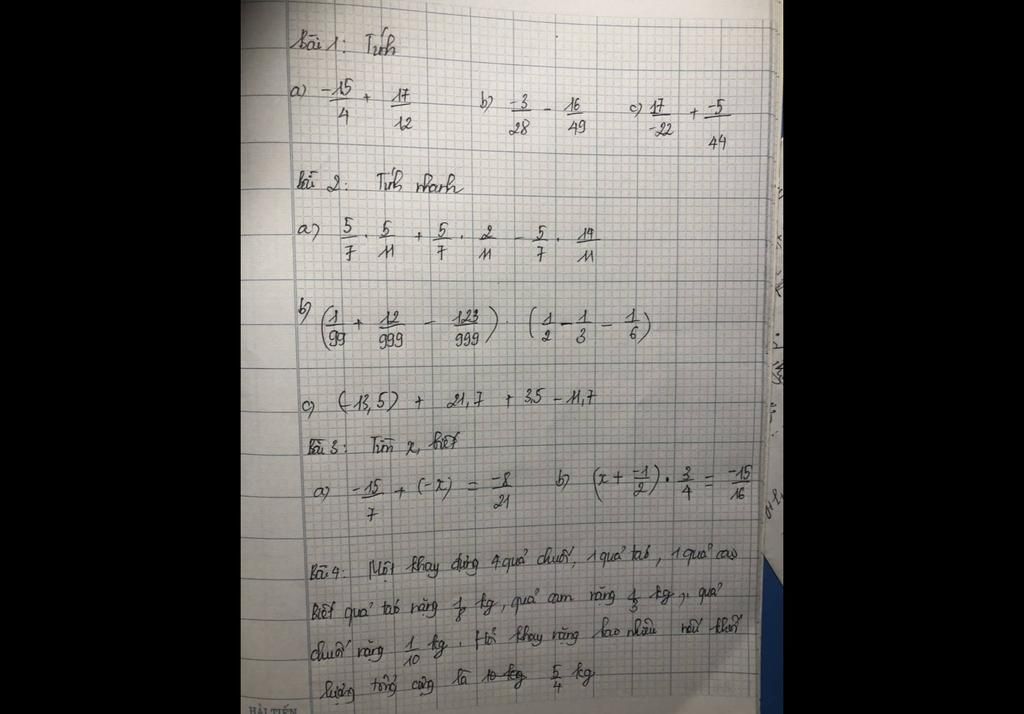 Bài 1: Tính
a) -15/4 + 17/12 b) -3/28 - 16/49 c) 17/-22 + -5/44
Bài 2: Tính nhanh
a) 5/7 . 5/11 + 5/7 . 2/11 - 5/7 . 14/11
b) (1/99 + 12/999 - 123/999) . (1/2 - 1/3 - 1/6)
c) (-13,5) + 21,7 + 3,5 - 11,7
Bài 3: Tìm x, biết
a) -15/7 + (-x) = -8/21 b) (x + -1/2) . 3/4 = -15/16
Bài 4: Một khay đựng 4 quả chuối, 1 quả táo, 1 quả cam
Biết quả táo nặng 1/8 kg, quả cam nặng 1/3 kg, quả
chuối nặng 1/10 kg. Hỏi khay nặng bao nhiêu nếu khối
lượng tổng cộng là 10 kg 5/4 kg
HẢI TIẾN